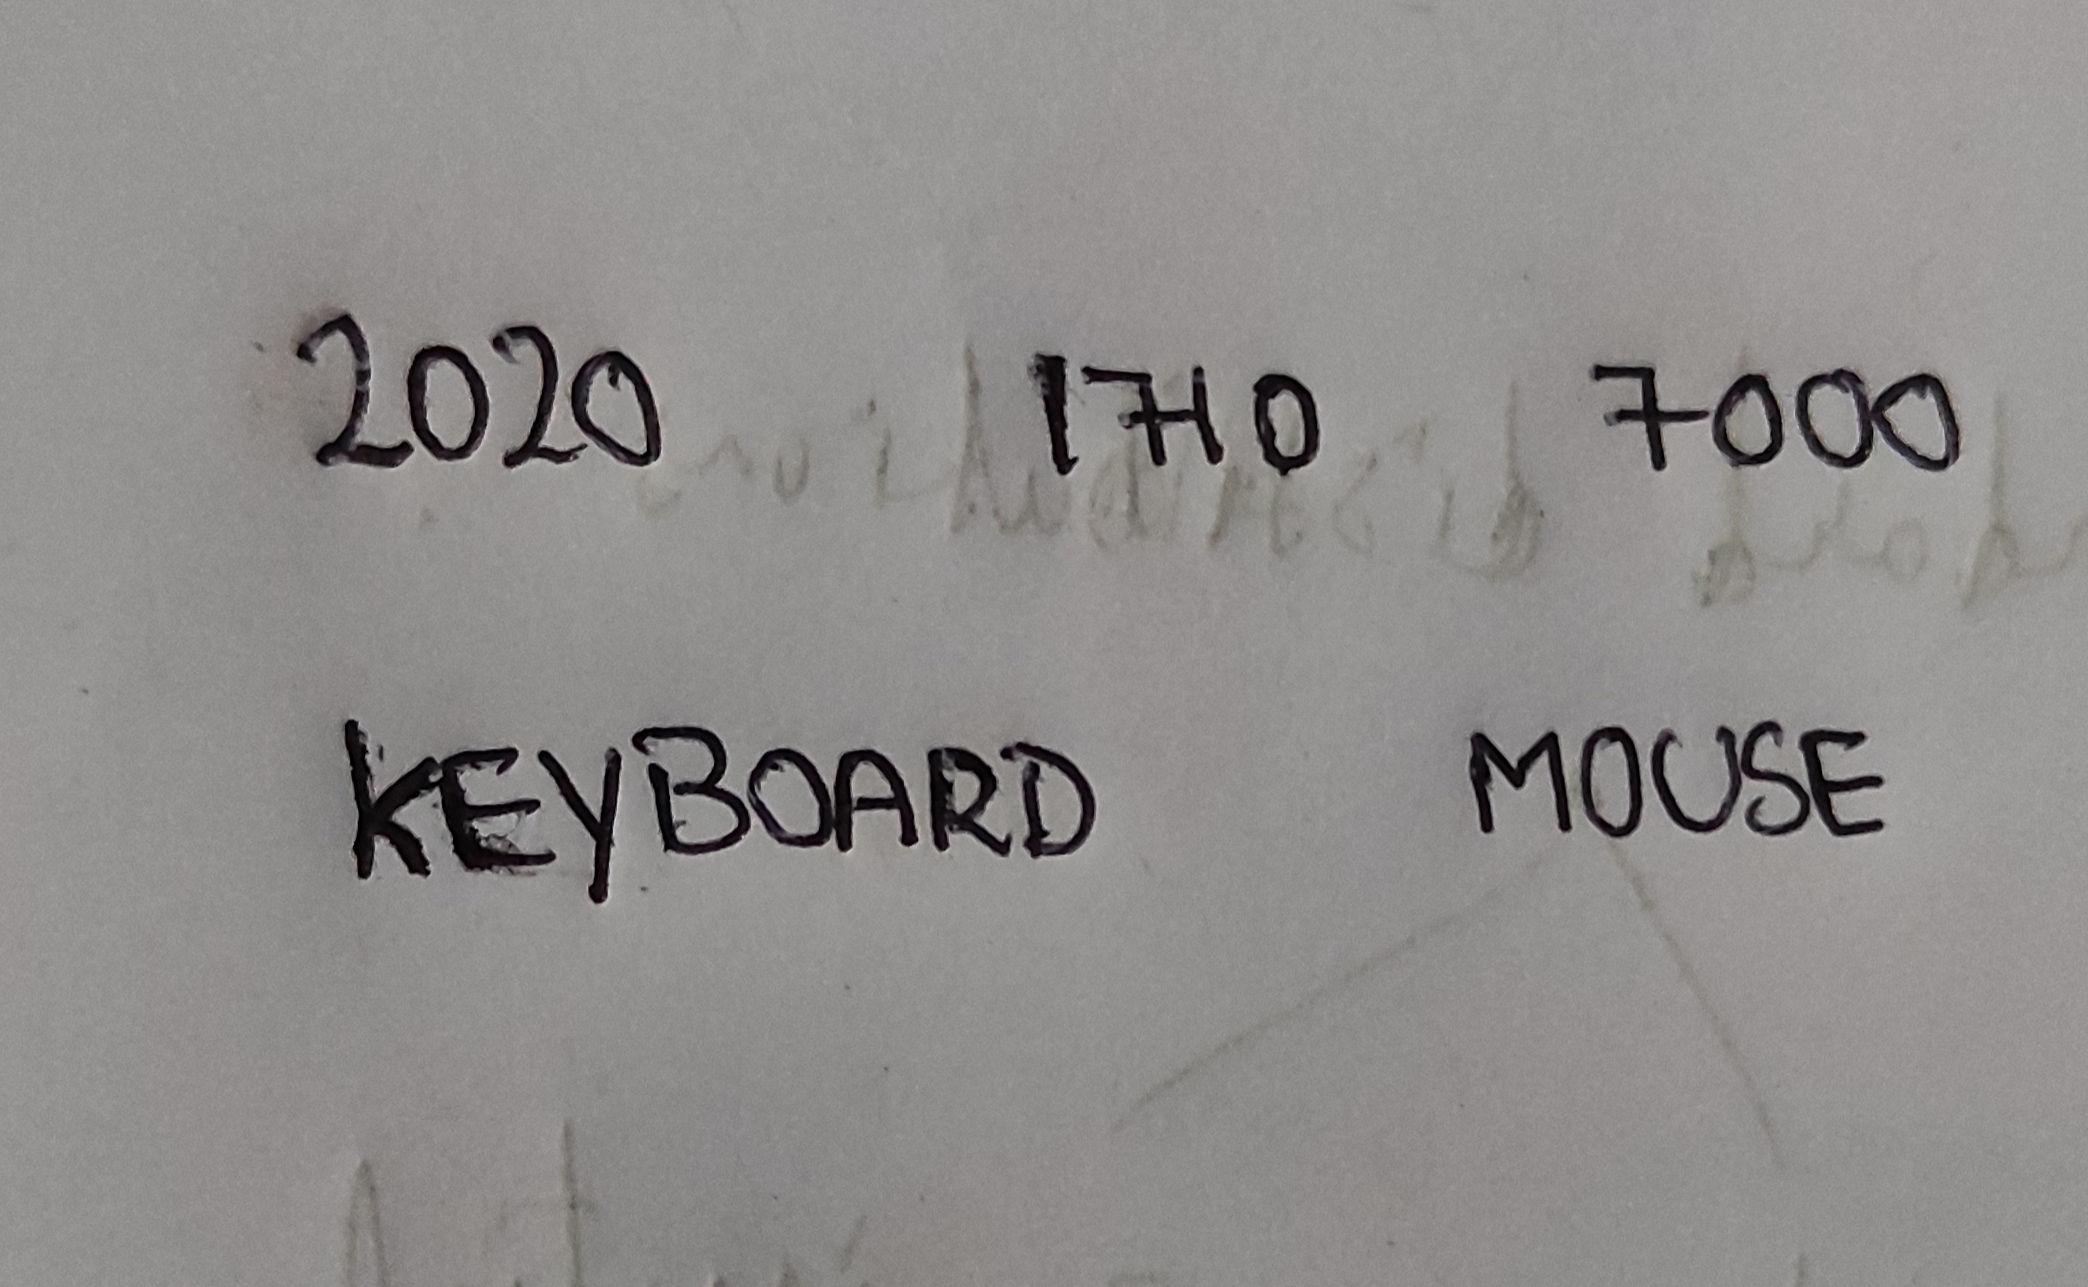 2020 1710 7000
KEYBOARD MOUSE